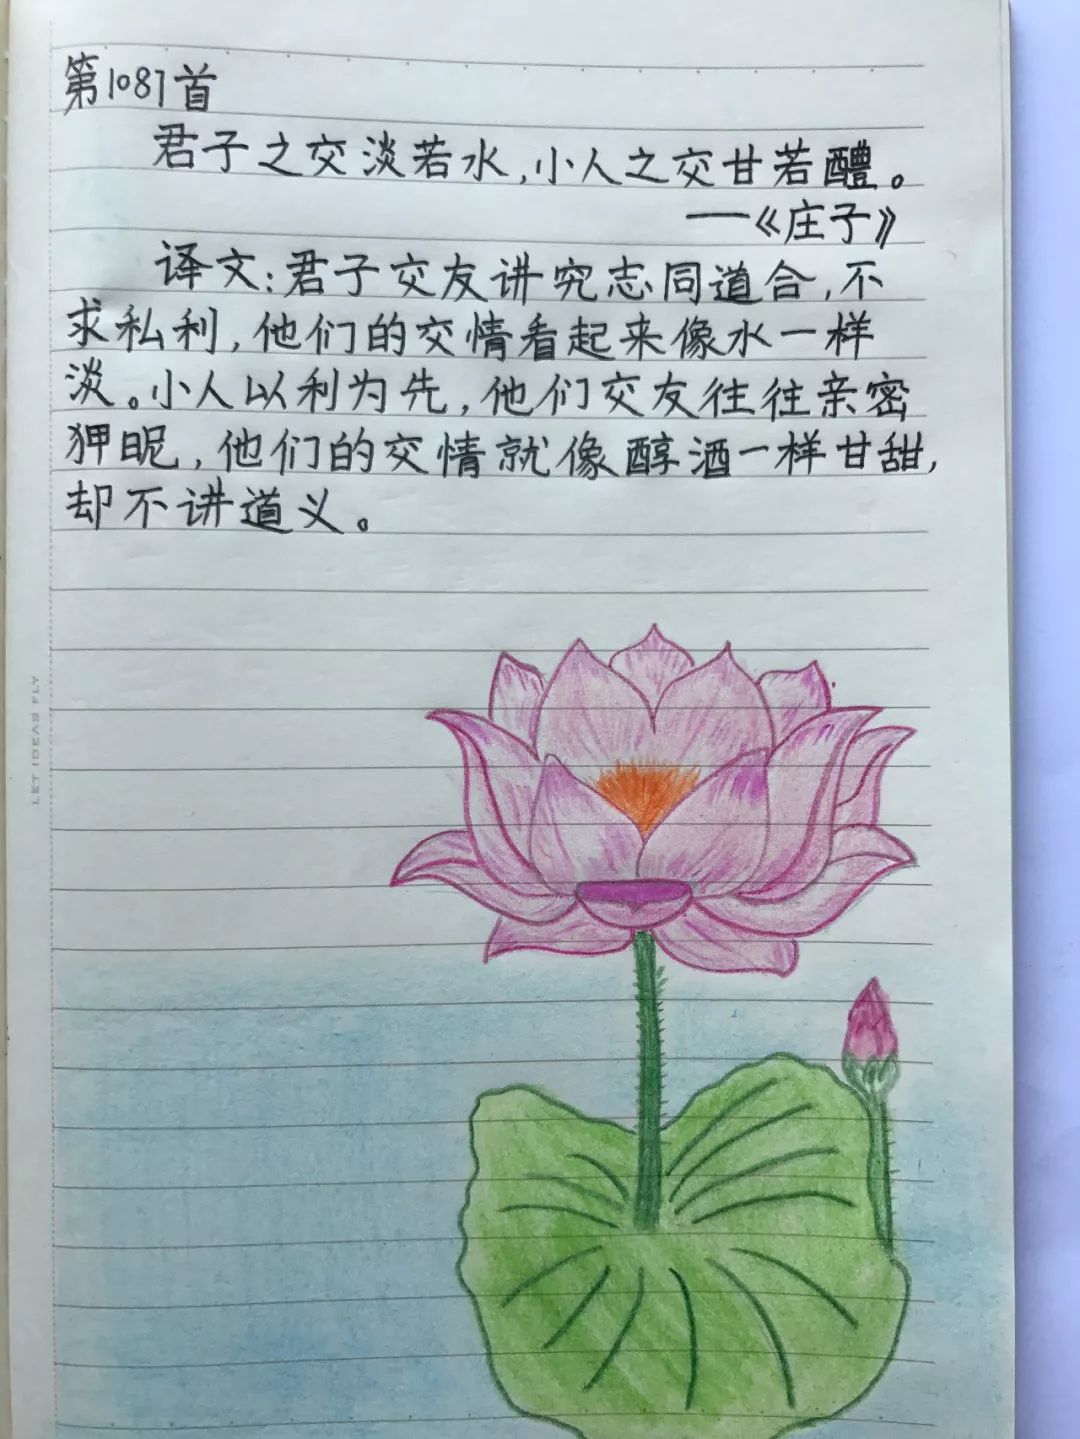 第1087首
君子之交淡若水,小人之交甘若醴。
——《庄子》
译文:君子交友讲究志同道合,不
求私利,他们的交情看起来像水一样
淡。小人以利为先,他们交友往往亲密
狎昵,他们的交情就像醇酒一样甘甜,
却不讲道义。
LET IDEAS FLY